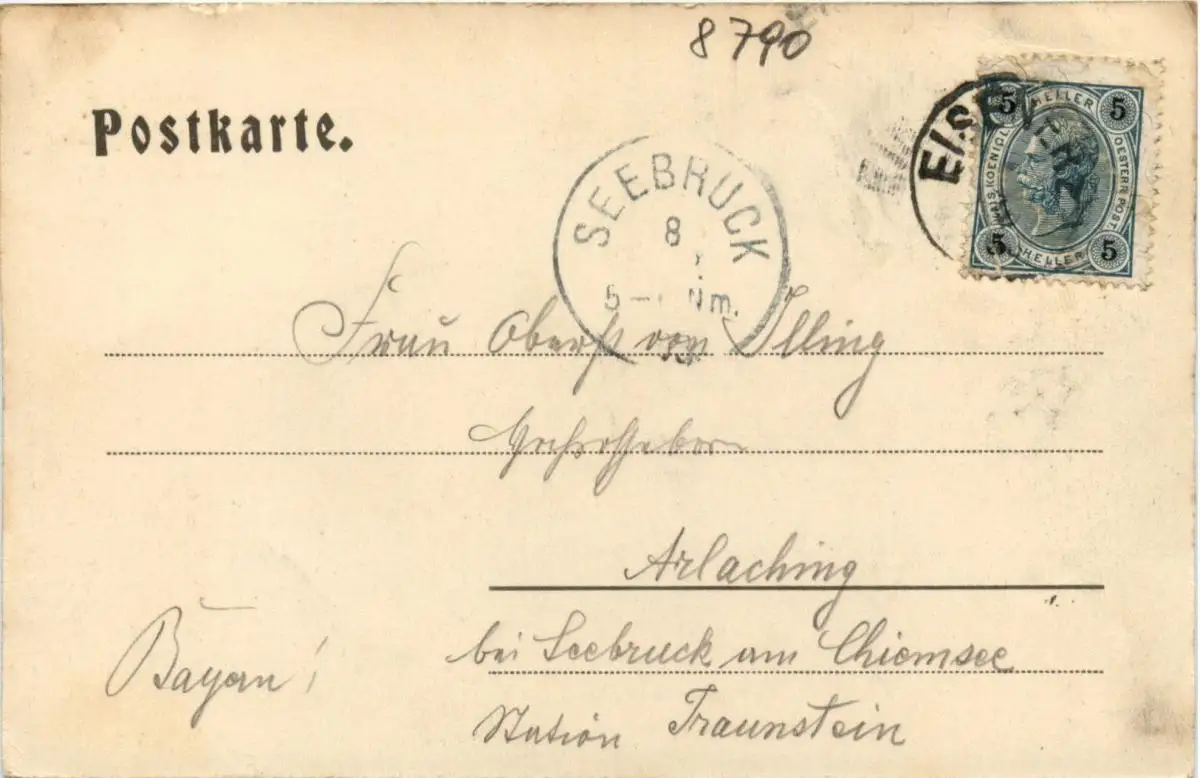 8790
Postkarte.
EISEN ERZ
5 HELLER 5
KAIS. KOENIGL. OESTERR. POST.
5 HELLER 5
SEEBRUCK
8
5 — Nm.
Frau Oberst von Illing
Arlaching
bei Seebruck am Chiemsee
Bayern!
Station Traunstein